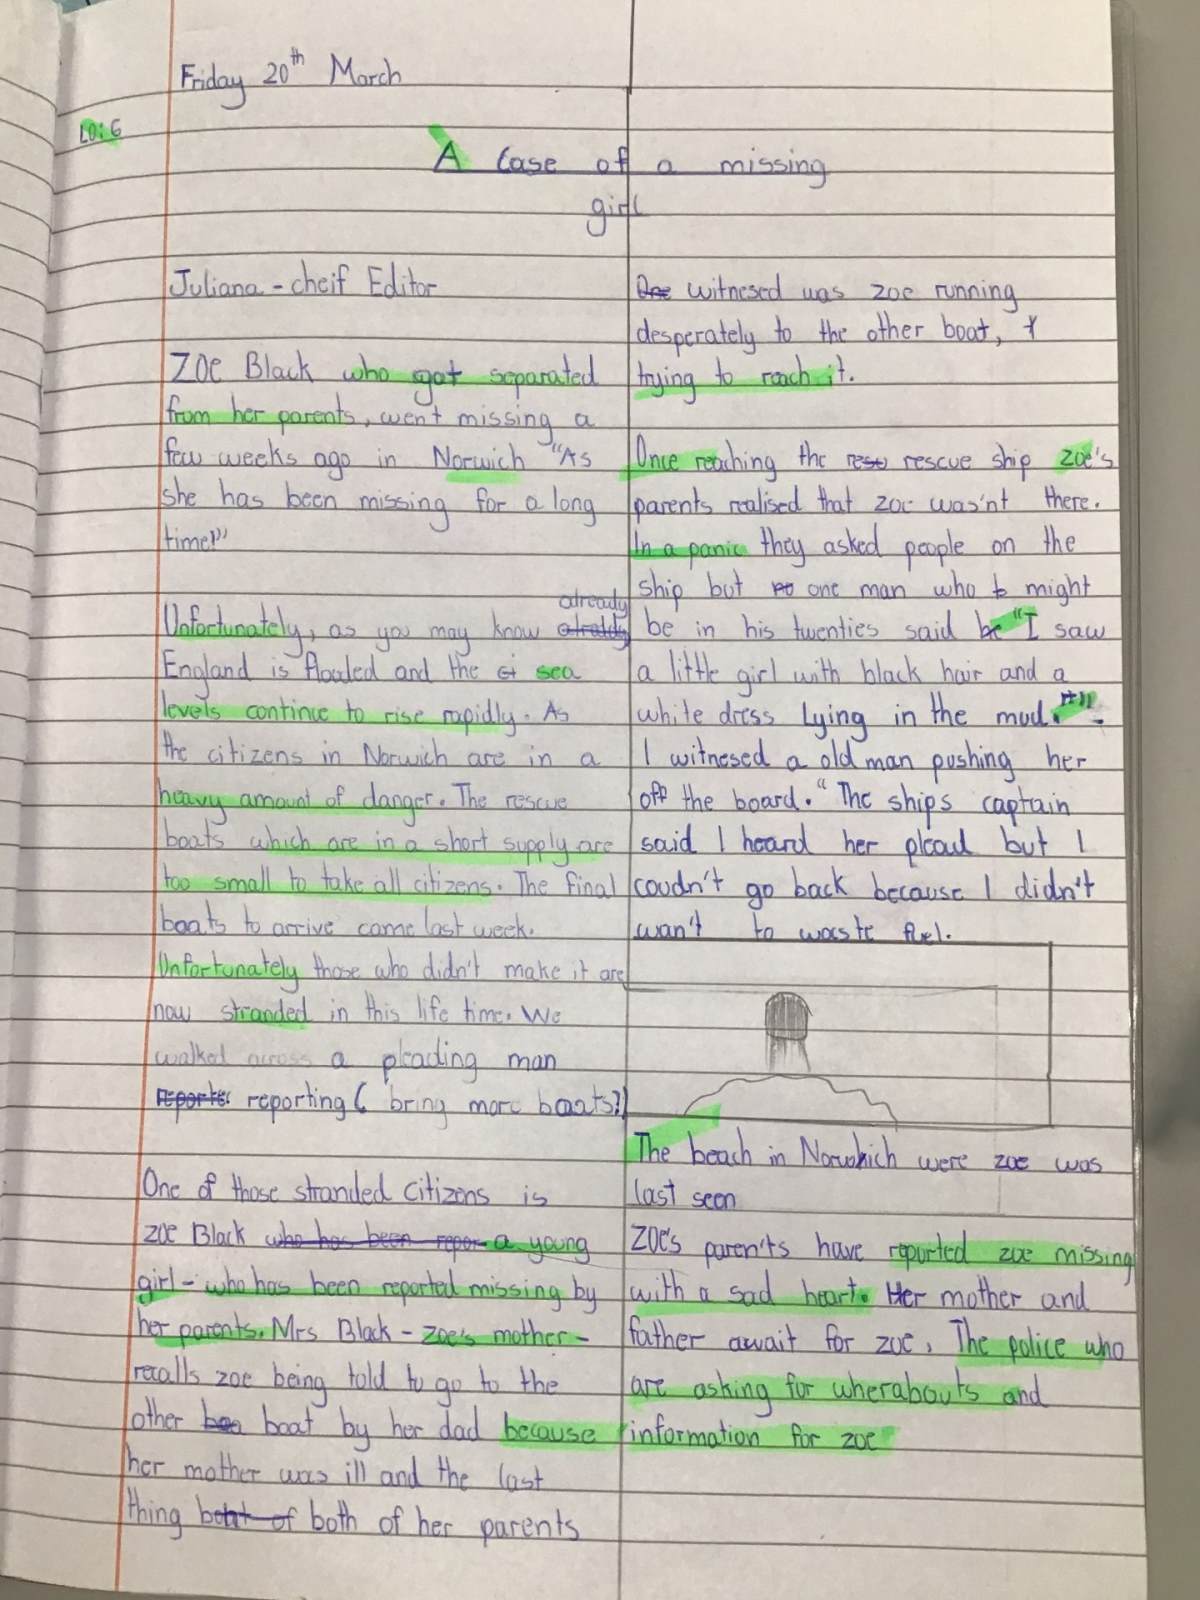 Friday 20th March
LO: 6
A Case of a missing
girl
Juliana - cheif Editor
Zoe Black who got separated
from her parents, went missing a
few weeks ago in Norwich "As
she has been missing for a long
time!"
Unfortunately, as you may know already
England is flooded and the sea
levels continue to rise rapidly. As
the citizens in Norwich are in a
heavy amount of danger. The rescue
boats which are in a short supply are
too small to take all citizens. The final
boats to arrive came last week.
Unfortunately those who didn't make it are
now stranded in this life time. We
walked across a pleading man
reporting ( bring more boats!)
One of those stranded citizens is
zoe Black who has been repor a young
girl - who has been reported missing by
her parents. Mrs Black - zoe's mother -
recalls zoe being told to go to the
other boat by her dad because
her mother was ill and the last
thing both of her parents
One witnesed was zoe running
desperately to the other boat,
trying to reach it.
Once reaching the rescue ship zoe's
parents realised that zoe was'nt there.
In a panic they asked people on the
ship but no one man who might
be in his twenties said "I saw
a little girl with black hair and a
white dress lying in the mud."
I witnesed a old man pushing her
off the board." The ships captain
said I heard her plead but I
coudn't go back because I didn't
wan't to waste fuel.
The beach in Norwhich were zoe was
last seen
Zoe's paren'ts have reported zoe missing
with a sad heart. Her mother and
father await for zoe. The police who
are asking for wherabouts and
information for zoe